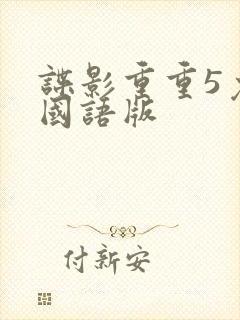 諜影重重5
國語版
付新安